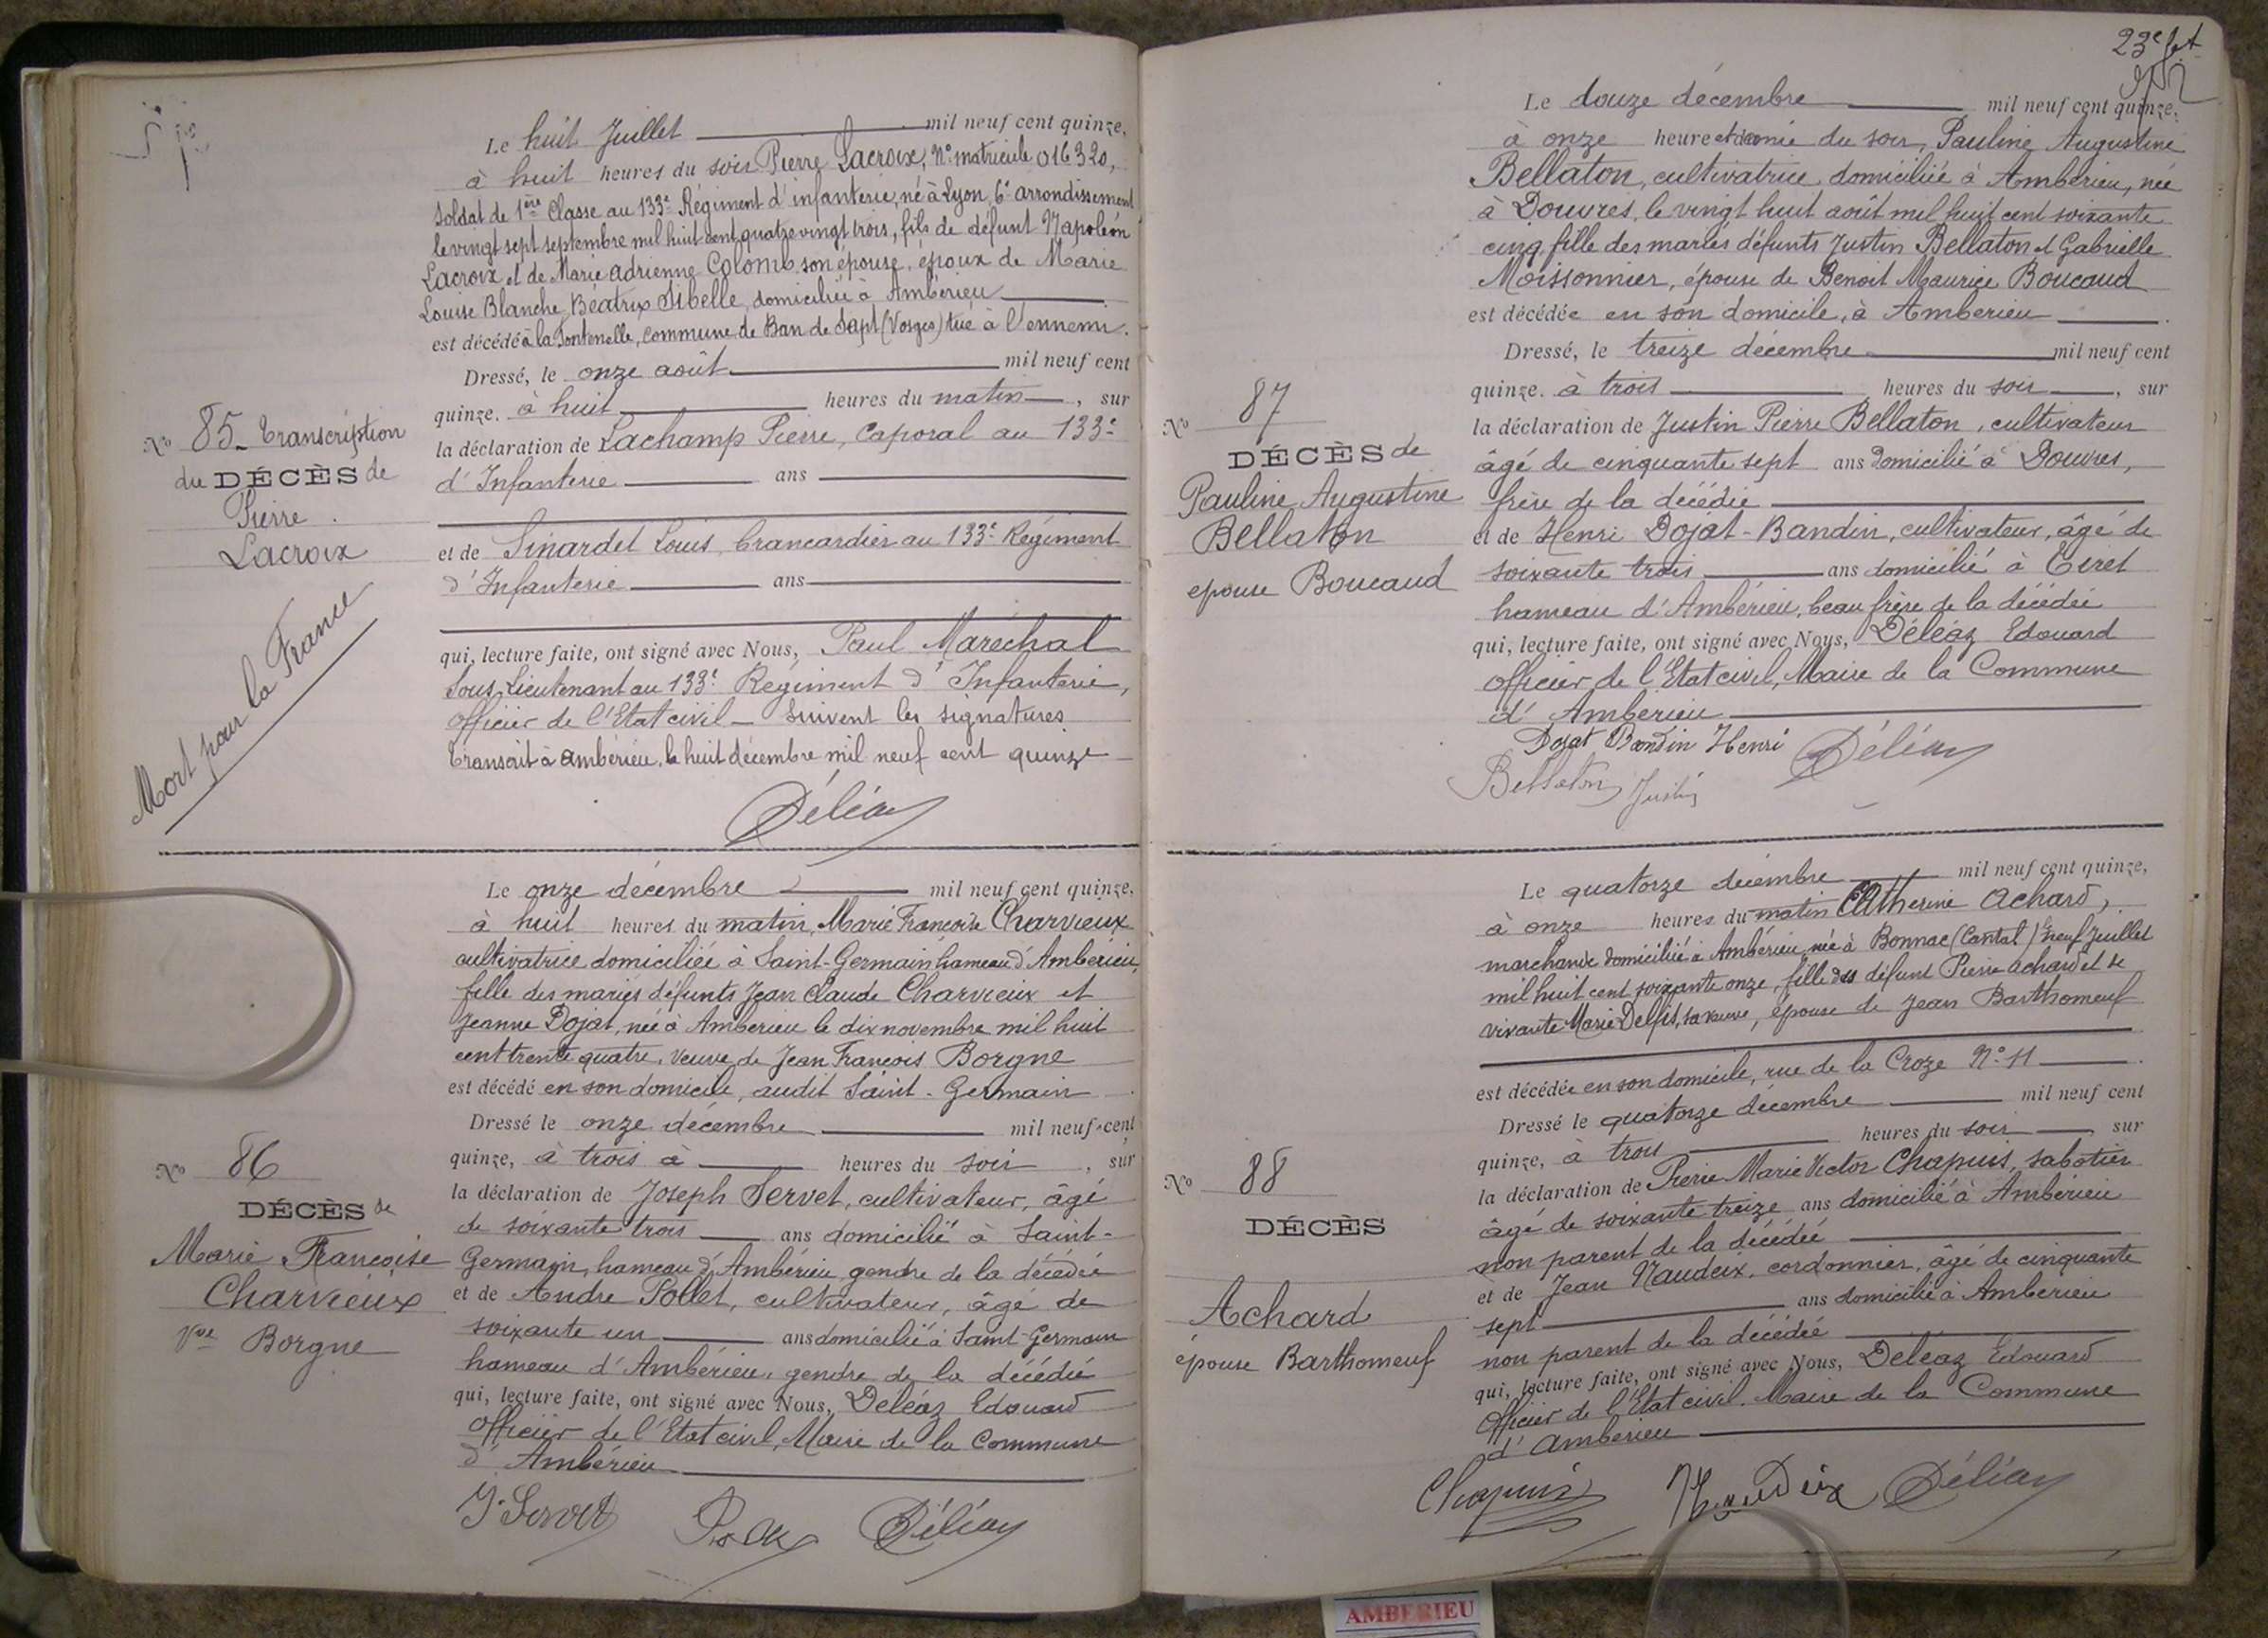 Le huit Juillet mil neuf cent quinze,
à huit heures du soir Pierre Lacroix, N° matricule 016320,
Soldat de 1ère Classe au 133e Régiment d'infanterie, né à Lyon, 6e arrondissement
le vingt sept septembre mil huit cent quatre vingt trois, fils de défunt Napoléon
Lacroix et de Marie Adrienne Colomb son épouse, époux de Marie
Louise Blanche Béatrix Sibelle, domiciliée à Ambérieu
est décédé à la Fontenelle, commune de Ban de Sapt (Vosges) tué à l'ennemi.
Dressé, le onze août mil neuf cent
quinze. à huit heures du matin, sur
la déclaration de Lachamp Pierre, Caporal au 133e
d'Infanterie ans
et de Sinardet Louis, brancardier au 133e Régiment
d'Infanterie ans
qui, lecture faite, ont signé avec Nous, Paul Maréchal
Sous-Lieutenant au 133e Régiment d'Infanterie,
officier de l'Etat civil - Suivent les signatures
Transcrit à Ambérieu, le huit décembre mil neuf cent quinze
Déléaz
N° 85 - Transcription
du DÉCÈS de
Pierre
Lacroix
Mort pour la France
Le onze décembre mil neuf cent quinze,
à huit heures du matin, Marie Françoise Charvieux
cultivatrice domiciliée à Saint-Germain hameau d'Ambérieu,
fille des mariés défunts Jean Claude Charvieux et
Jeanne Dojat, née à Ambérieu le dix novembre mil huit
cent trente quatre, veuve de Jean François Borgne
est décédé en son domicile, audit Saint-Germain
Dressé le onze décembre mil neuf cent
quinze, à trois à heures du soir, sur
la déclaration de Joseph Servet, cultivateur, âgé
de soixante trois ans domicilié à Saint-
Germain, hameau d'Ambérieu gendre de la décédée
et de Andre Pollet, cultivateur, âgé de
soixante un ans domicilié à Saint-Germain
hameau d'Ambérieu, gendre de la décédée
qui, lecture faite, ont signé avec Nous, Déléaz Edouard
Officier de l'Etat civil, Maire de la Commune
d'Ambérieu
J. Servet Déléaz
N° 86
DÉCÈS de
Marie Françoise
Charvieux
Vve Borgne
23e f et
Le douze décembre mil neuf cent quinze,
à onze heures et demie du soir, Pauline Augustine
Bellaton, cultivatrice, domiciliée à Ambérieu, née
à Douvres, le vingt huit août mil huit cent soixante
cinq, fille des mariés défunts Justin Bellaton et Gabrielle
Moissonnier, épouse de Benoit Maurice Boucaud
est décédée en son domicile, à Ambérieu
Dressé, le treize décembre mil neuf cent
quinze. à trois heures du soir, sur
la déclaration de Justin Pierre Bellaton, cultivateur
âgé de cinquante sept ans domicilié à Douvres,
frère de la décédée
et de Henri Dojat-Bandin, cultivateur, âgé de
soixante trois ans domicilié à Tiret
hameau d'Ambérieu, beau frère de la décédée
qui, lecture faite, ont signé avec Nous, Déléaz Edouard
Officier de l'Etat civil, Maire de la Commune
d'Ambérieu
Dojat Bandin Henri Déléaz
Bellaton Justin
N° 87
DÉCÈS de
Pauline Augustine
Bellaton
epouse Boucaud
Le quatorze décembre mil neuf cent quinze,
à onze heures du matin Catherine Achard,
marchande domiciliée à Ambérieu, née à Bonnac (Cantal) le neuf Juillet
mil huit cent soixante onze, fille des défunt Pierre Achard et de
vivante Marie Delfis, sa veuve, épouse de Jean Barthomeuf
est décédée en son domicile, rue de la Croze N° 11
Dressé le quatorze décembre mil neuf cent
quinze, à trois heures du soir, sur
la déclaration de Pierre Marie Victor Chapuis, sabotier
âgé de soixante treize ans domicilié à Ambérieu
non parent de la décédée
et de Jean Naudeix, cordonnier, âgé de cinquante
sept ans domicilié à Ambérieu
non parent de la décédée
qui, lecture faite, ont signé avec Nous, Déléaz Edouard
Officier de l'Etat civil. Maire de la Commune
d'Ambérieu
Chapuis Naudeix Déléaz
N° 88
DÉCÈS
Achard
épouse Barthomeuf
AMBERIEU